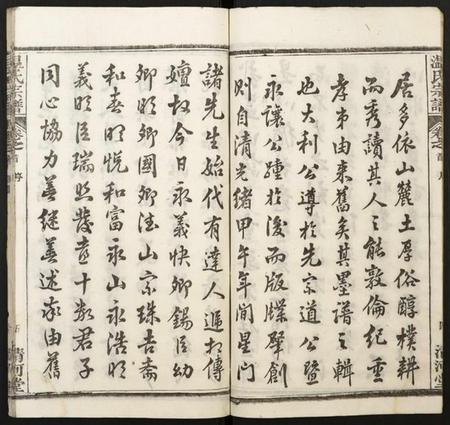 溫氏宗譜
卷之首
居多依山麓土厚俗醇樸耕
而秀讀其人之能敦倫紀重
孝弟由來舊矣其墨譜之輯
也大利公導於先宗道公暨
永讓公踵於後而版牒肇創
則自清光緒甲午年間星門
諸先生始代有達人遞相傳
嬗故今日永義快卿錫臣幼
卿明卿國卿佳山宗珠吉齋
和春明悅和富永山永浩明
義明臣瑞照發定十數君子
同心協力善繼善述率由舊
溫氏宗譜
卷之首
清河堂
清河堂